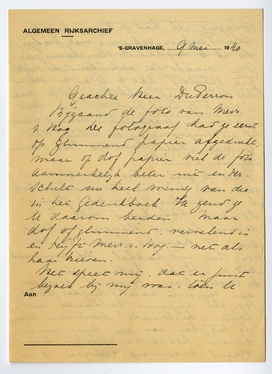 ALGEMEEN RIJKSARCHIEF
'S-GRAVENHAGE, 9 Mei 1940
Geachte Heer Du Perron
Bijgaand de foto van Mevr
v. Wog. De fotograaf had ze eerst
op glimmend papier afgedrukt,
maar op dof papier viel de foto
aanmerkelijk beter uit en ver-
schilt nu heel weinig van die
in het gedenkboek. Ik zend ze
U daarom beiden. Maar
dof of glimmend, vervelend is
en blijft Mevr. v. Wog — net als
haar brieven.
Het speet mij, dat er juist
bezoek bij mij was, toen U
Aan